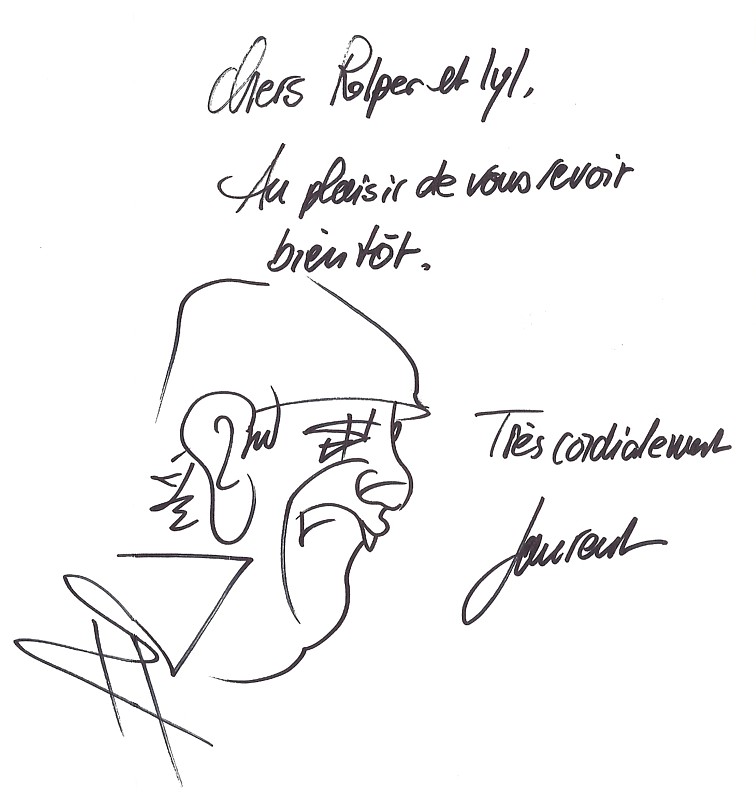 Chers Rolper et lyl,
Au plaisir de vous revoir
bientôt.
Très cordialement
Laurent